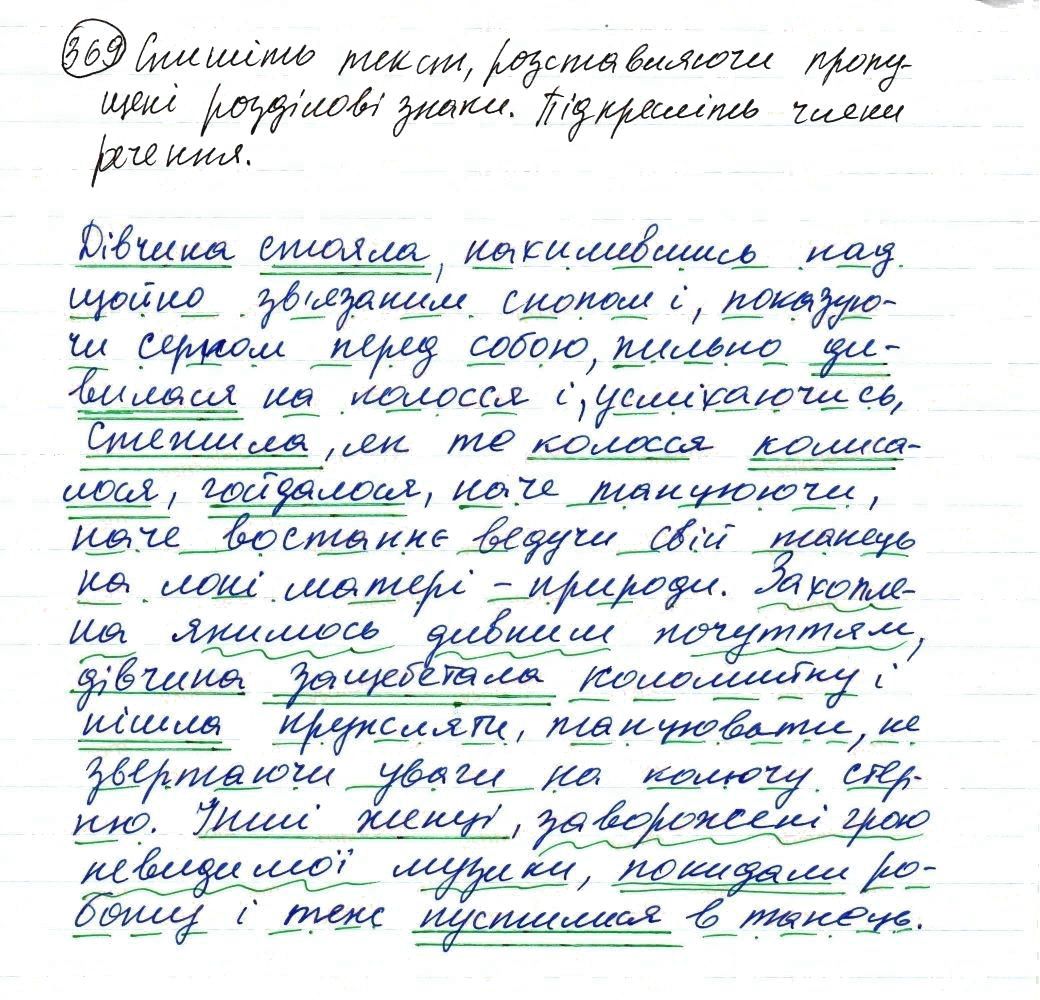 369 Спишіть текст, розставляючи пропу-
щені розділові знаки. Підкресліть члени
речення.
Дівчина стояла, нахилившись над
щойно зв'язаним снопом і, показую-
чи серпом перед собою, пильно ди-
вилася на колосся і, усміхаючись,
стежила, як те колосся колиса-
лося, гойдалося, наче танцюючи,
наче востаннє ведучи свій танець
на лоні матері - природи. Захопле-
на якимось дивним почуттям,
дівчина защебетала коломийку і
пішла кружляти, танцювати, не
звертаючи уваги на колючу стер-
ню. Інші женці, заворожені грою
невидимої музики, покидали ро-
боту і теж пустилися в танець.